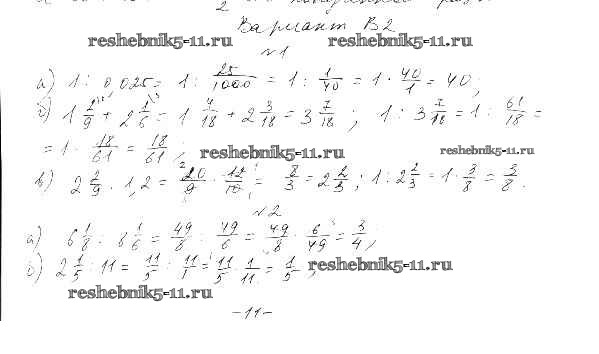 Вариант В2
reshebnik5-11.ru reshebnik5-11.ru
№1
а) 1 : 0,025 = 1 : 25/1000 = 1 : 1/40 = 1 · 40/1 = 40;
б) 1 2/9 + 2 1/6 = 1 4/18 + 2 3/18 = 3 7/18 ; 1 : 3 7/18 = 1 : 61/18 =
= 1 · 18/61 = 18/61 ;
reshebnik5-11.ru reshebnik5-11.ru
в) 2 2/9 · 1,2 = 20/9 · 12/10 = 8/3 = 2 2/3 ; 1 : 2 2/3 = 1 · 3/8 = 3/8 .
№2
а) 6 1/8 : 8 1/6 = 49/8 : 49/6 = 49/8 · 6/49 = 3/4 ;
б) 2 1/5 : 11 = 11/5 : 11/1 = 11/5 · 1/11 = 1/5 ;
reshebnik5-11.ru
reshebnik5-11.ru
-11-